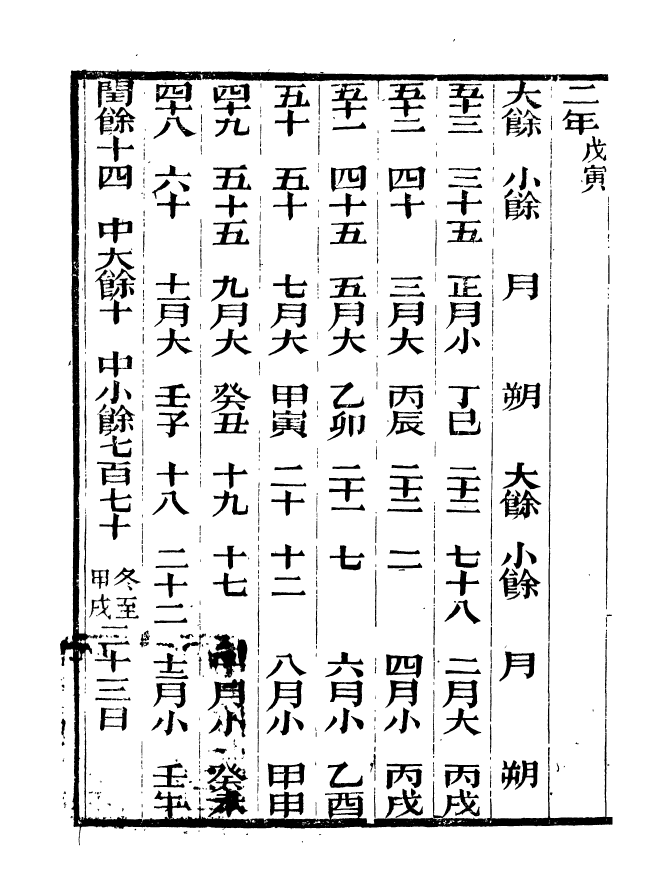 二年戊寅
大餘 小餘 月 朔 大餘 小餘 月 朔
五十三 三十五 正月小 丁巳 二十二 七十八 二月大 丙戌
五十二 四十 三月大 丙辰 二十二 二 四月小 丙戌
五十一 四十五 五月大 乙卯 二十一 七 六月小 乙酉
五十 五十 七月大 甲寅 二十 十二 八月小 甲申
四十九 五十五 九月大 癸丑 十九 十七 十月小 癸未
四十八 六十 十一月大 壬子 十八 二十二 十二月小 壬午
閏餘十四 中大餘十 中小餘七百七十 冬至甲戌二十三日